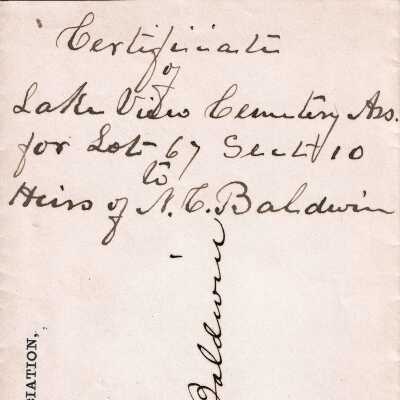 Certificate
of
Lake View Cemetery Ass.
for Lot 67 Sect 10
to
Heirs of N. C. Baldwin
Baldwin
CIATION,